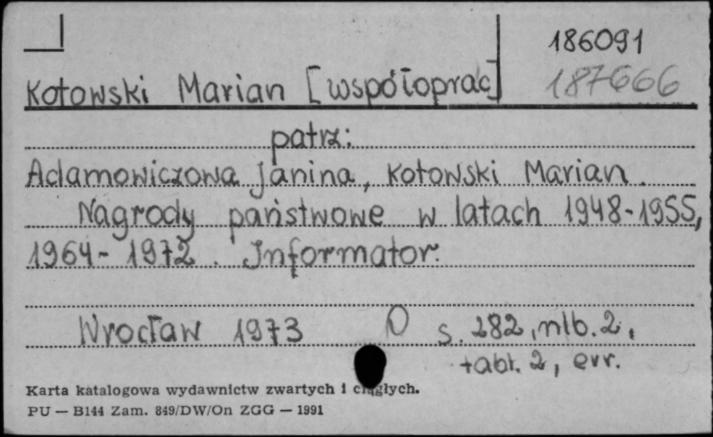 186091
Kotowski Marian [współoprac]
187666
patrz:
Adamowiczowa Janina, Kotowski Marian.
Nagrody państwowe w latach 1948-1955,
1964-1972. Informator.
Wrocław 1973 O s. 282, nlb. 2,
tabl. 2, err.
Karta katalogowa wydawnictw zwartych i ciągłych.
PU — B144 Zam. 849/DW/On ZGG — 1991